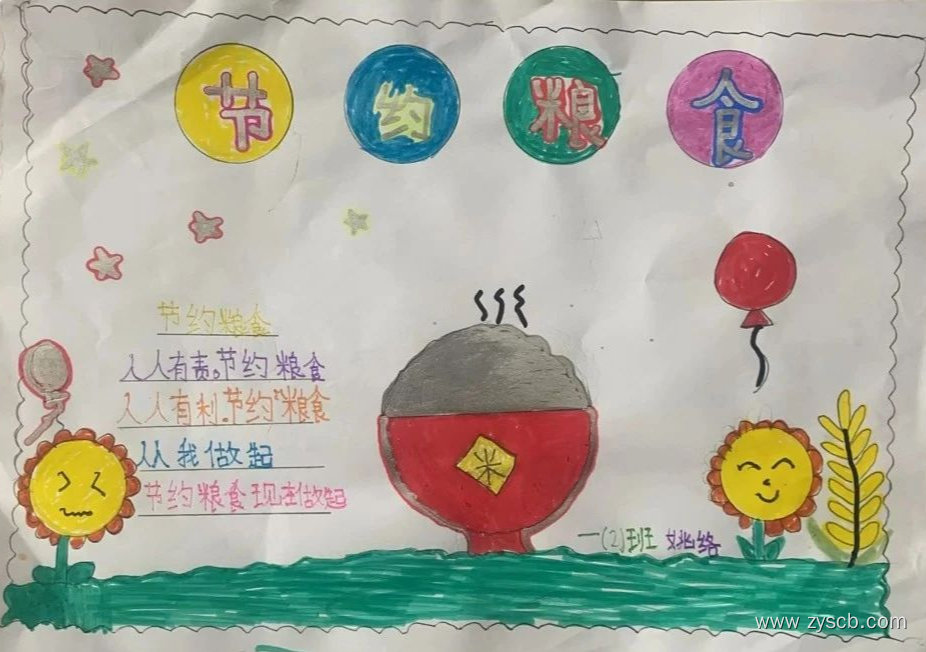 节约粮食
节约粮食
人人有责。节约粮食
人人有利。节约粮食
从我做起
节约粮食现在做起
米
一(2)班 姚络
www.zyscb.com